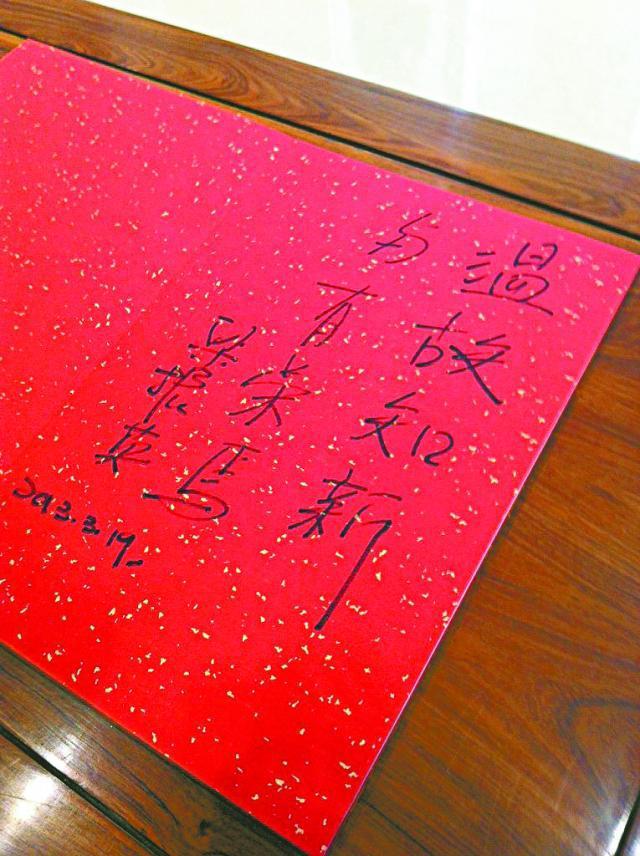 温故知新
与有荣焉
梁振英
2013.3.19.